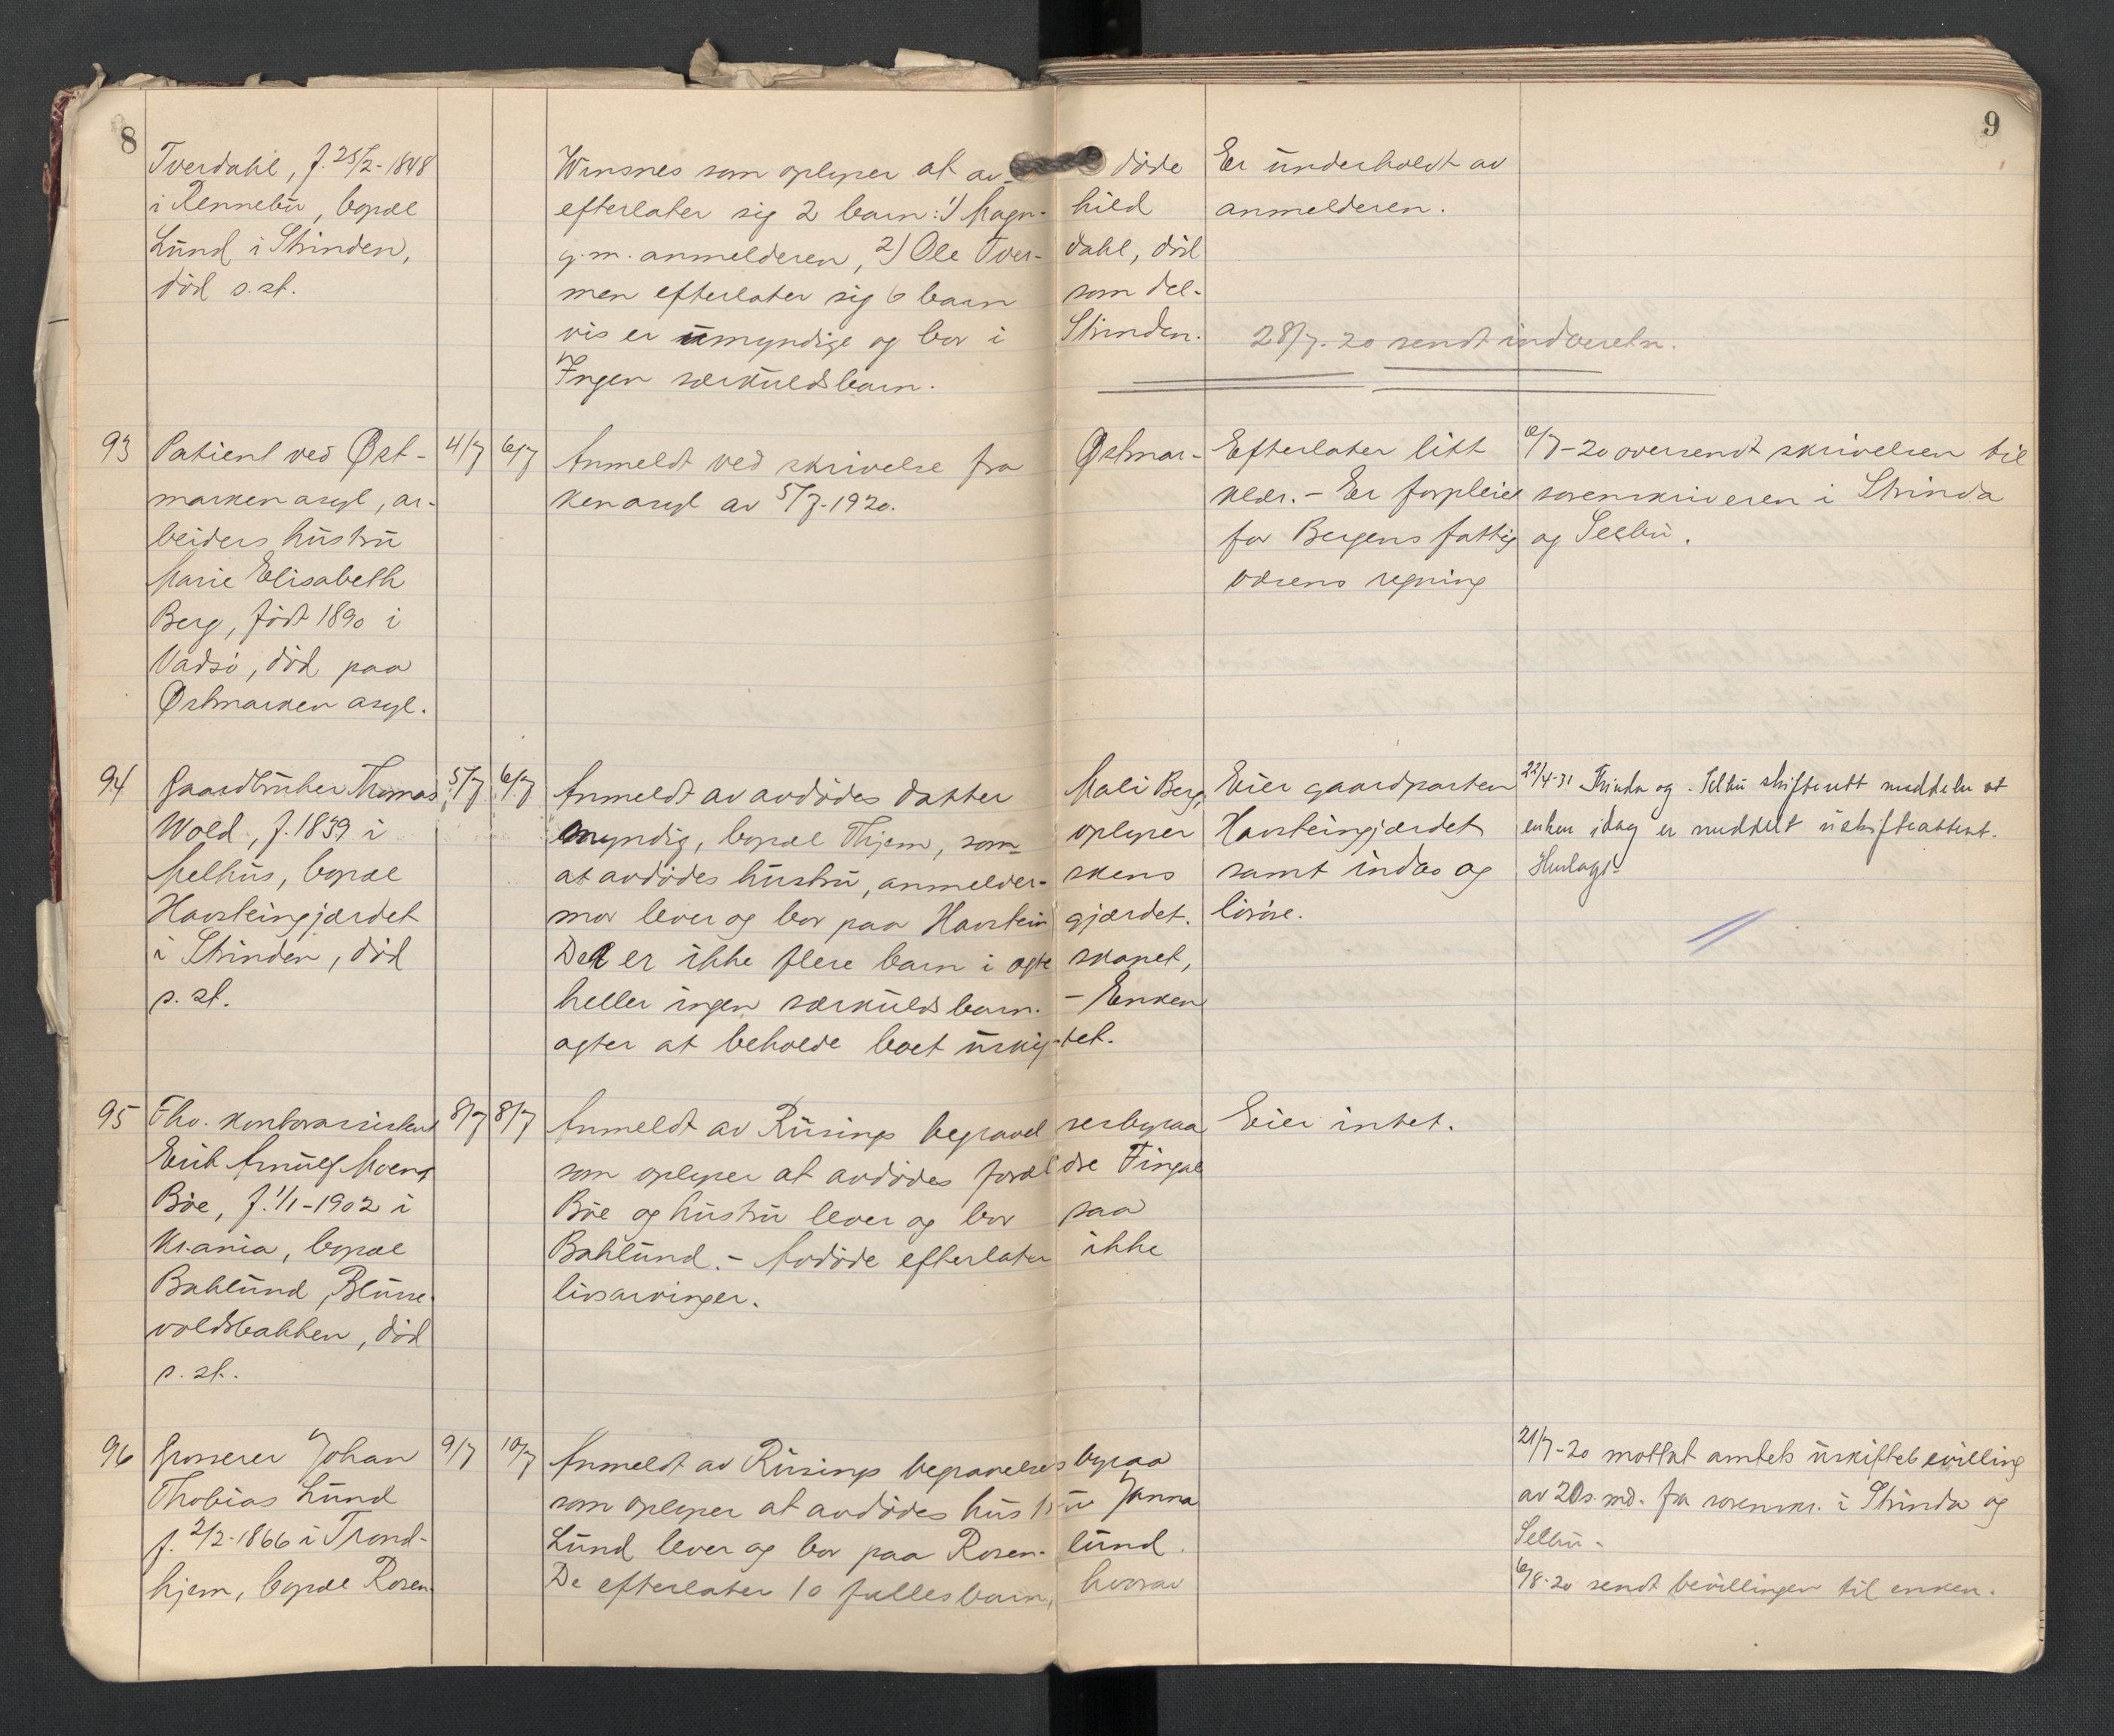 8
9
Tverdahl, f. 25/2-1848
i Rennebu, bopæl
Lund i Strinden,
död s. st.
Winsnes som oplyser at av- döde
efterlater sig 2 barn: 1) Magn- hild
g. m. anmelderen, 2) Ole Tver- dahl, död
men efterlater sig 6 barn som del-
vis er umyndige og bor i Strinden.
Ingen særkuldsbarn.
Er underholdt av
anmelderen.
28/7-20 sendt indberetn.
93
Patient ved Øst-
marken asyl, ar-
beiders hustru
Marie Elisabeth
Berg, födt 1890 i
Vadsö, död paa
Østmarken asyl.
4/7
6/7
Anmeldt ved skrivelse fra Østmar-
ken asyl av 5/7-1920.
Efterlater litt
klær. - Er forpleiet
for Bergens fattig
væsens regning
6/7-20 oversendt skrivelsen til
sorenskriveren i Strinda
og Selbu.
94
Gaardbruker Thomas
Wold, f. 1839 i
Melhus, bopæl
Havsteingjærdet
i Strinden, död
s. st.
5/7
6/7
Anmeldt av avdödes datter Mali Berg,
myndig, bopæl Thjem, som oplyser
at avdödes hustru, anmelder- skens
mor lever og bor paa Havstein gjærdet.
Det er ikke flere barn i egte skapet,
heller ingen særkuldsbarn. - Enken
agter at beholde boet uskif- tet.
Eier gaardparten
Havsteingjærdet
samt indbo og
lösöre.
22/4-31 Strinda og Selbu skifterett meddeler at
enken idag er meddelt uskifteattest.
Henlagt.
95
Fhv. kontorassistent
Erik Arnulf Moens
Böe, f. 1/1-1902 i
Kr.ania, bopæl
Baklund, Blusse-
voldsbakken, död
s. st.
8/7
8/7
Anmeldt av Rüsings begravel sesbyraa
som oplyser at avdödes foræl dre Fingal
Böe og hustru lever og bor paa
Baklund. - Avdöde efterlater ikke
livsarvinger.
Eier intet.
96
Grosserer Johan
Thobias Lund
f. 2/2-1866 i Trond-
hjem, bopæl Rosen-
9/7
10/7
Anmeldt av Rüsings begravelses byraa
som oplyser at avdödes hustr u Janna
Lund lever og bor paa Rosen- lund.
De efterlater 10 fællesbarn, hvorav
21/7-20 mottat amtets uskiftebevilling
av 20 s. md. fra sorenskr. i Strinda og
Selbu.
6/8-20 sendt bevillingen til enken.